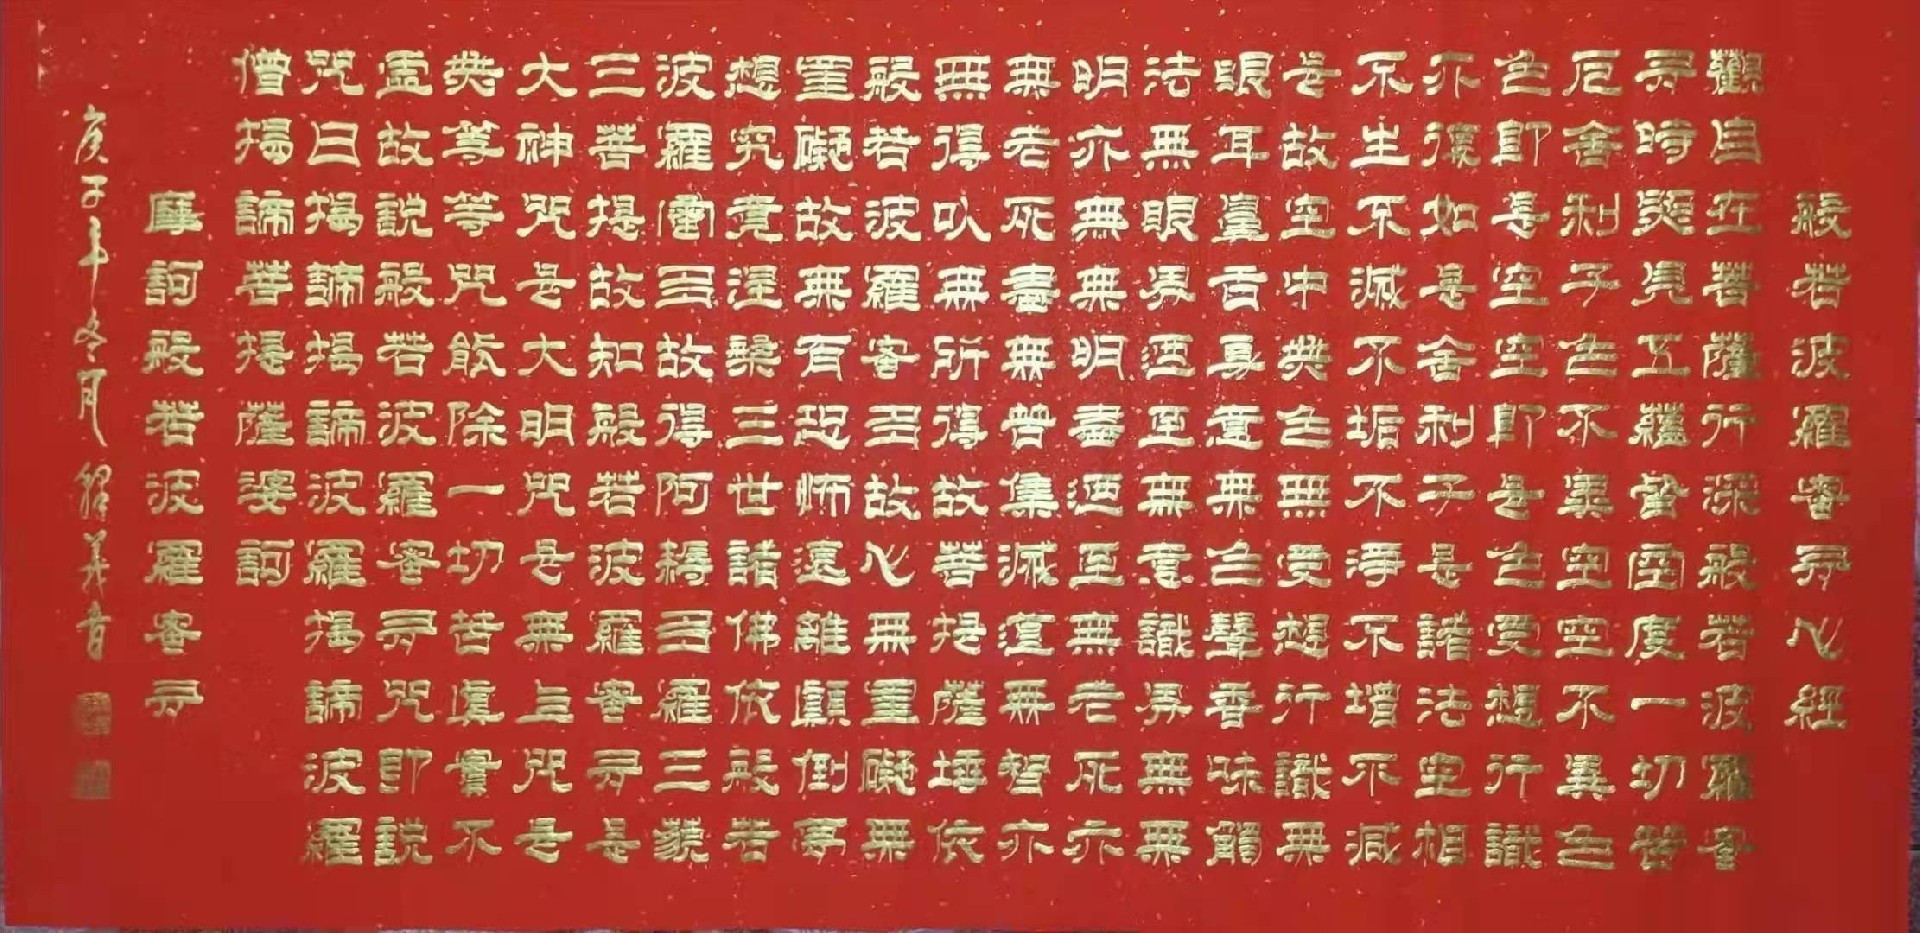 般若波羅蜜多心經
觀自在菩薩行深般若波羅蜜
多時照見五蘊皆空度一切苦
厄舍利子色不異空空不異色
色即是空空即是色受想行識
亦復如是舍利子是諸法空相
不生不滅不垢不淨不增不減
是故空中無色無受想行識無
眼耳鼻舌身意無色聲香味觸
法無眼界乃至無意識界無無
明亦無無明盡乃至無老死亦
無老死盡無苦集滅道無智亦
無得以無所得故菩提薩埵依
般若波羅蜜多故心無罣礙無
罣礙故無有恐怖遠離顛倒夢
想究竟涅槃三世諸佛依般若
波羅蜜多故得阿耨多羅三藐
三菩提故知般若波羅蜜多是
大神咒是大明咒是無上咒是
無等等咒能除一切苦真實不
虛故說般若波羅蜜多咒即說
咒曰揭諦揭諦波羅揭諦波羅
僧揭諦菩提薩婆訶
摩訶般若波羅蜜多
庚子年冬月釋義音